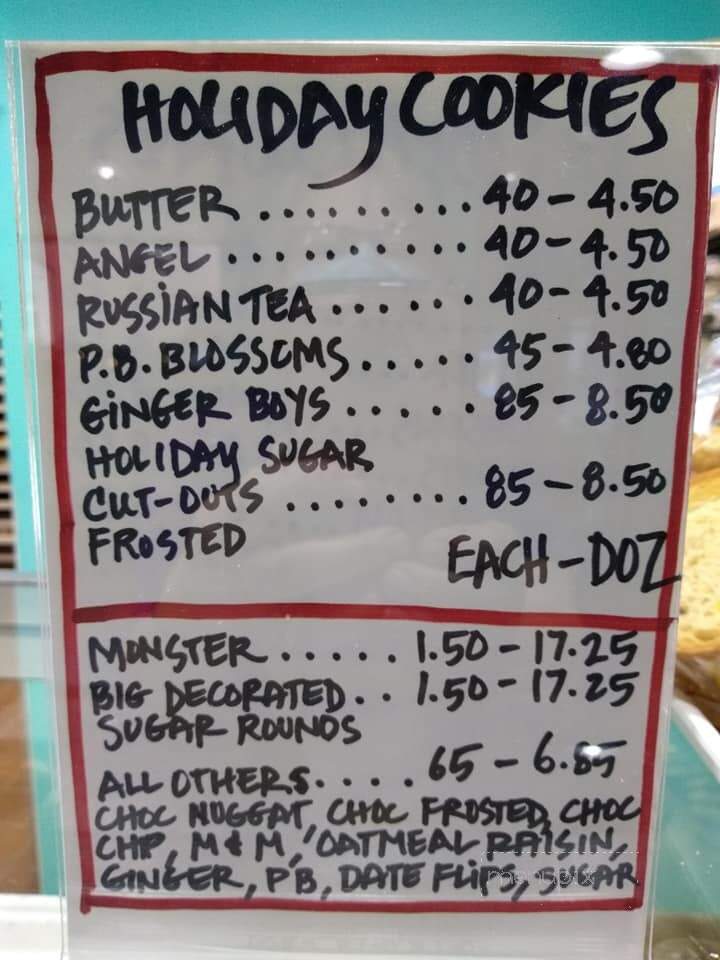 HOLIDAY COOKIES
BUTTER ......... 40 - 4.50
ANGEL .......... 40 - 4.50
RUSSIAN TEA ...... 40 - 4.50
P.B. BLOSSOMS ..... 45 - 4.80
GINGER BOYS ...... 85 - 8.50
HOLIDAY SUGAR
CUT-OUTS ......... 85 - 8.50
FROSTED
EACH - DOZ
MONSTER ..... 1.50 - 17.25
BIG DECORATED .. 1.50 - 17.25
SUGAR ROUNDS
ALL OTHERS ..... 65 - 6.85
CHOC NUGGAT, CHOC FROSTED, CHOC
CHP, M & M, OATMEAL RAISIN,
GINGER, P'B, DATE FLIPS, SUGAR
menupix